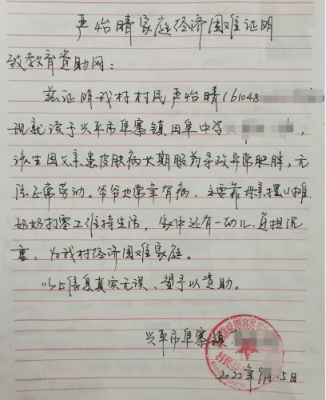 严怡晴家庭经济困难证明
致教育资助网：
兹证明我村村民严怡晴（61048
现就读于兴平市阜寨镇田阜中学
该生因父亲患皮肤病长期服药导致异常肥胖，无
法正常劳动。爷爷也常年有病，主要靠母亲摆小摊
奶奶打零工维持生活，家中还有一幼儿，负担沉
重，为我村经济困难家庭。
以上信息真实无误，望予以资助。
兴平市阜寨镇
2022年9月15日